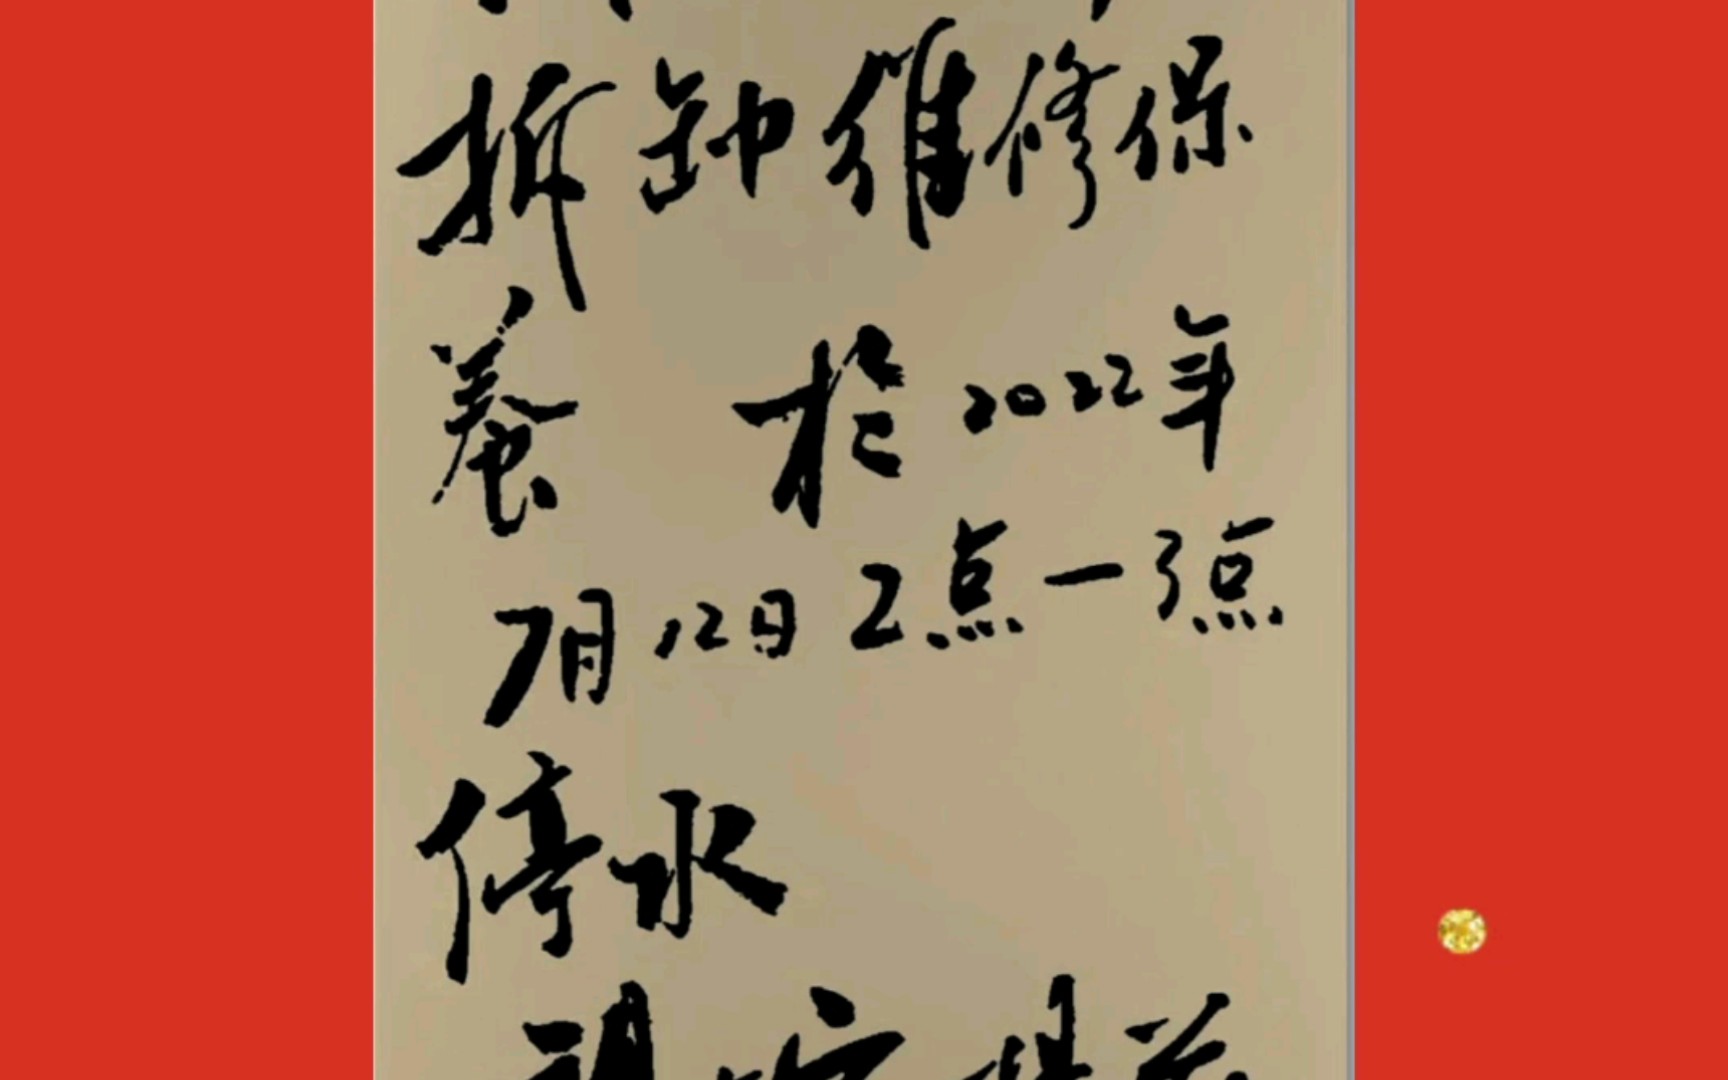 拆卸维修保
养 于2022年
7月12日2点一3点
停水